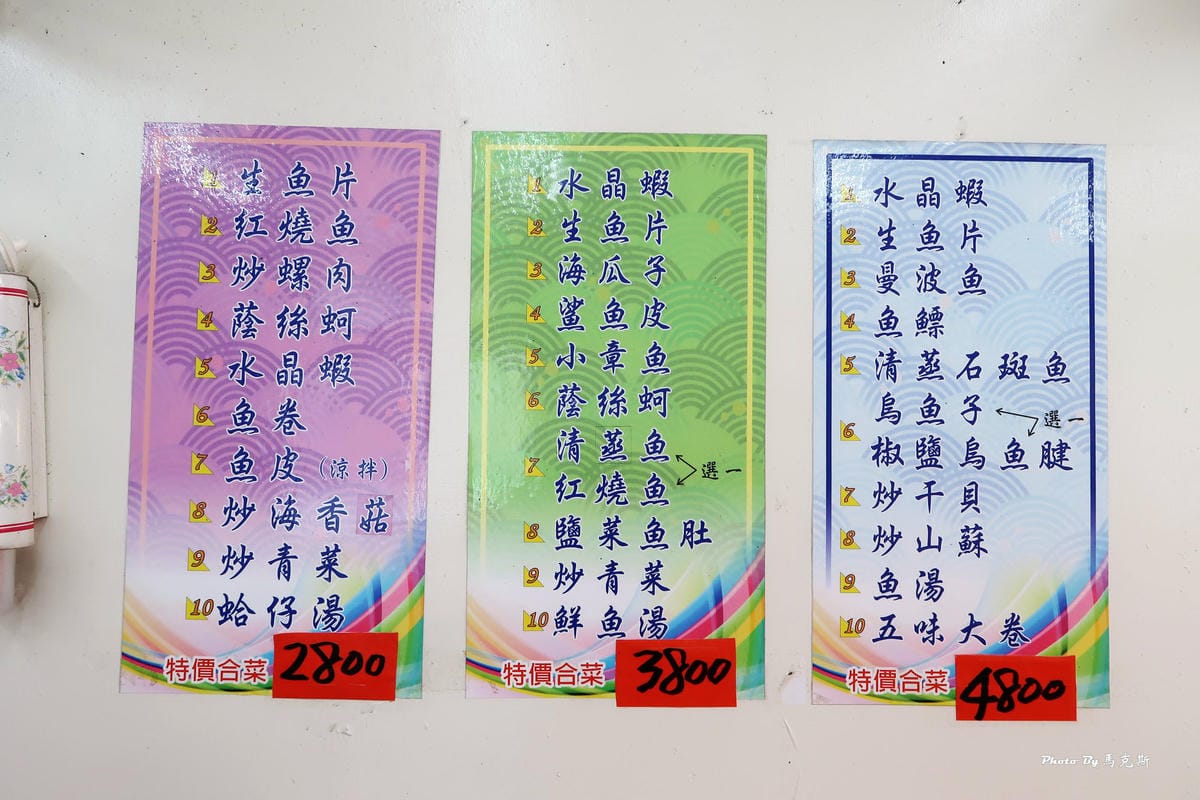 1 生魚片
2 紅燒魚
3 炒螺肉
4 蔭絲蚵
5 水晶蝦
6 魚卷
7 魚皮(涼拌)
8 炒海香菇
9 炒青菜
10 蛤仔湯
特價合菜 2800
1 水晶蝦
2 生魚片
3 海瓜子
4 鯊魚皮
5 小章魚
6 蔭絲蚵
7 清蒸魚
紅燒魚
選一
8 鹽菜魚肚
9 炒青菜
10 鮮魚湯
特價合菜 3800
1 水晶蝦
2 生魚片
3 曼波魚
4 魚鰾
5 清蒸石斑魚
6 烏魚子
椒鹽烏魚腱
選一
7 炒干貝
8 炒山蘇
9 魚湯
10 五味大卷
特價合菜 4800
Photo By 馬克斯